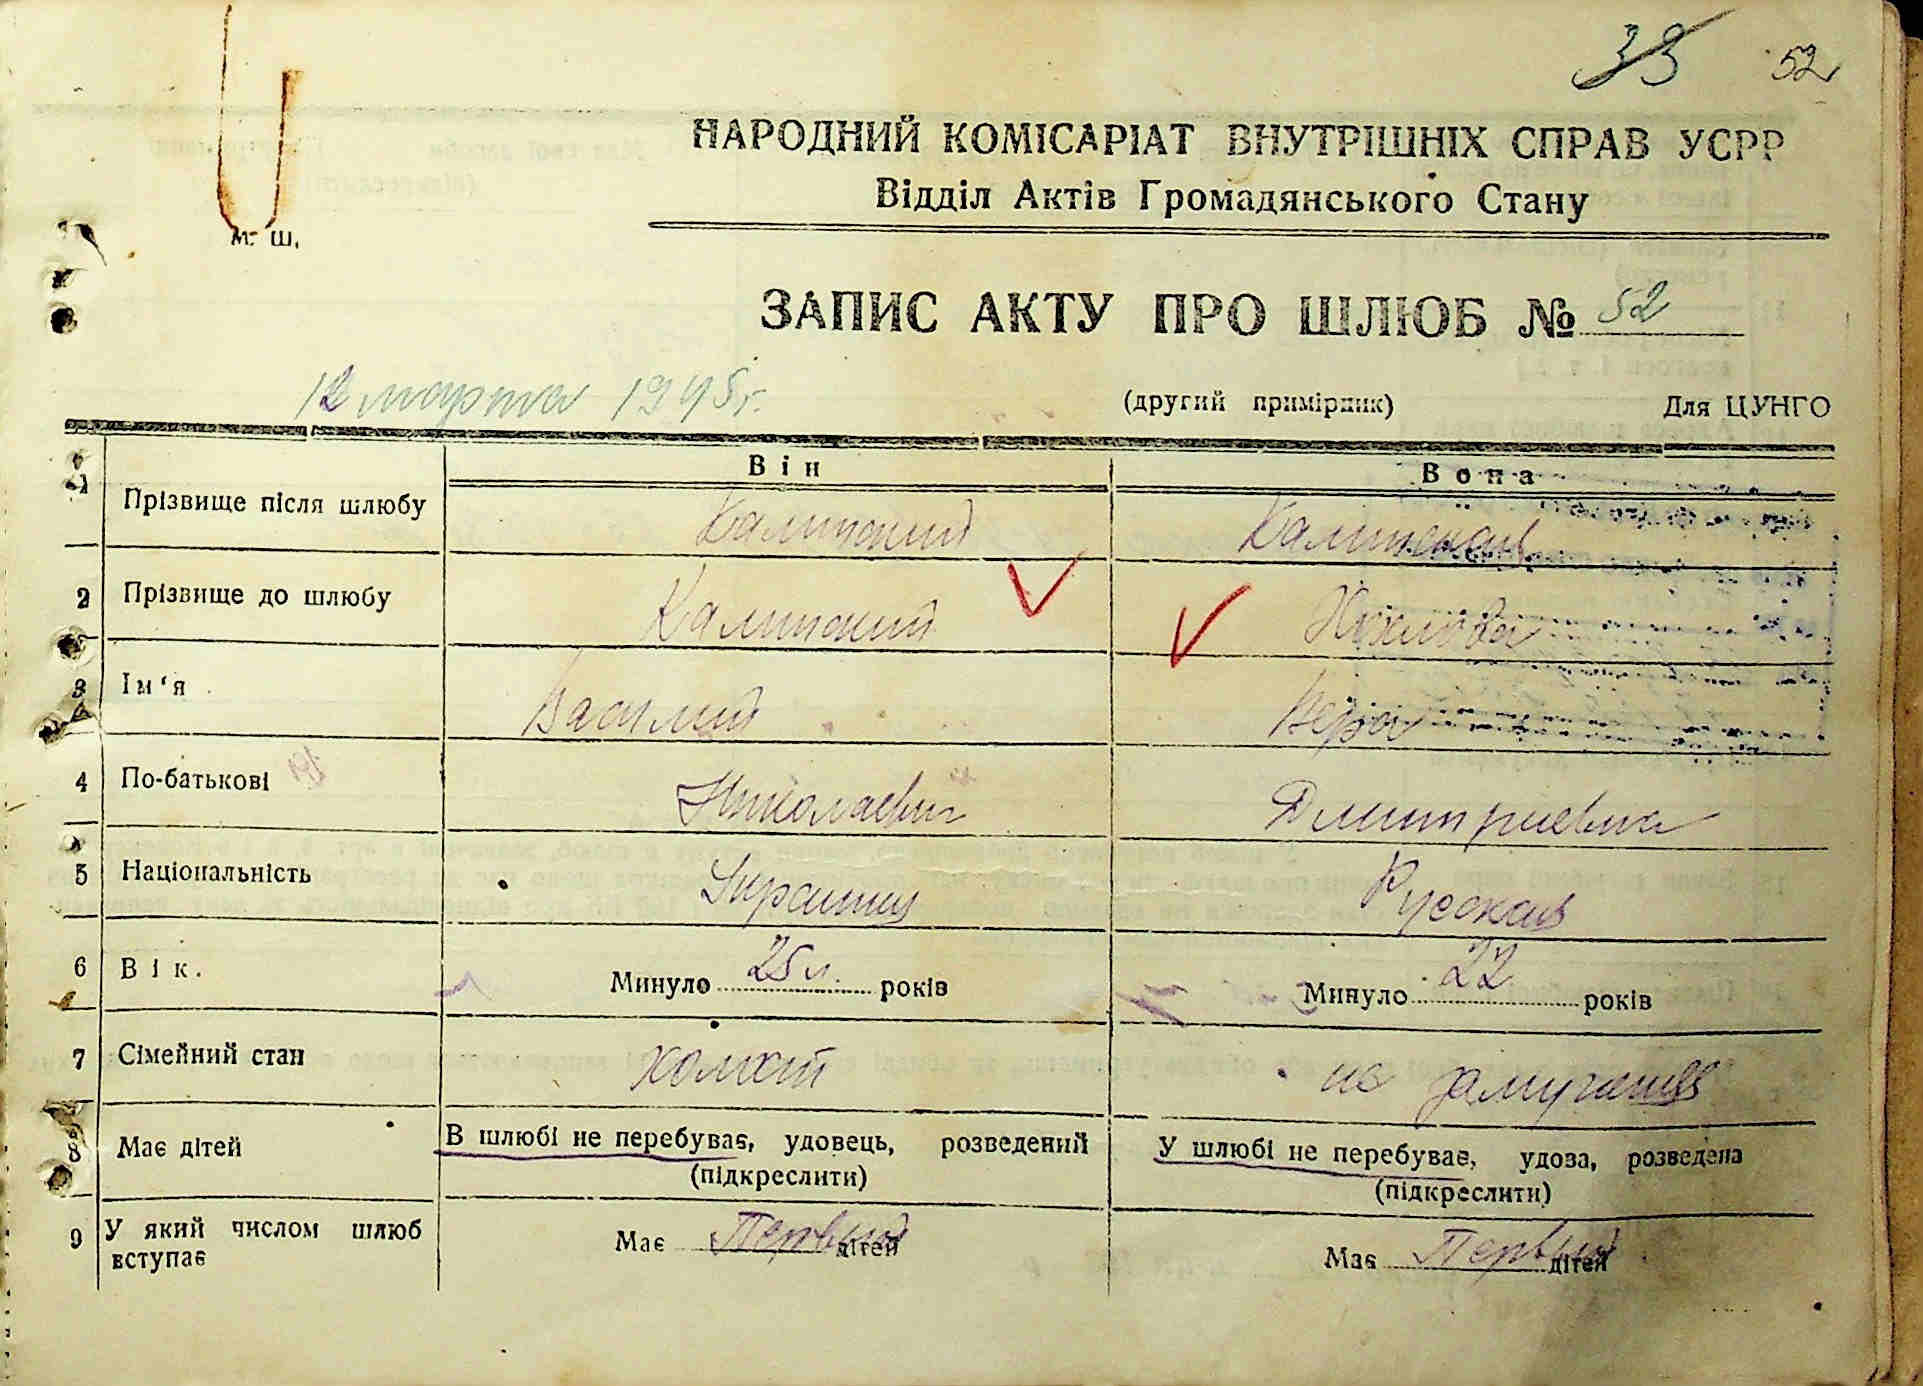 33 52
НАРОДНИЙ КОМІСАРІАТ ВНУТРІШНІХ СПРАВ УСРР
Відділ Актів Громадянського Стану
М. Ш.
ЗАПИС АКТУ ПРО ШЛЮБ № 52
12 марта 1945 г.
(другий примірник) Для ЦУНГО
Він Вона
1 Прізвище після шлюбу
2 Прізвище до шлюбу
3 Ім'я Василий Вера
4 По-батькові Николаевич Дмитриевна
5 Національність Украинец Русская
6 Вік. Минуло 25 л. років Минуло 22 років
7 Сімейний стан холост не замужняя
8 Має дітей В шлюбі не перебуває, удовець, розведений У шлюбі не перебуває, удова, розведена
(підкреслити) (підкреслити)
9 У який числом шлюб вступає Має Первый дітей Має Первый дітей